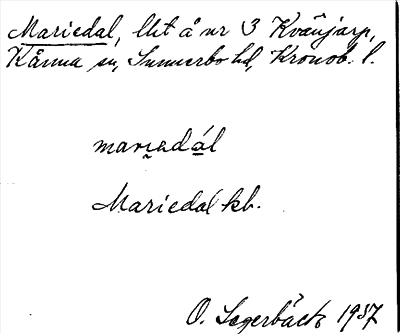 Mariedal, lht å nr 3 Kvänjarp,
Kånna sn, Sunnerbo hd, Kronob. l.
marıadál
Mariedal kb.
O. Segerbäck 1937